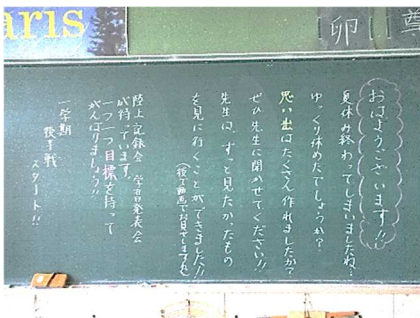 aris
卯
おはようございます!!
夏休み終わってしまいましたね…
ゆっくり休めたでしょうか?
思い出はたくさん作れましたか?
ぜひ先生に聞かせてください!!
先生は、ずっと見たかったもの
を見に行くことができました!!
(後で動画でお見せしますね)
陸上記録会、学習発表会
が待っています。
一つ一つ目標を持って
がんばりましょう!!
一学期
後半戦
スタート!!